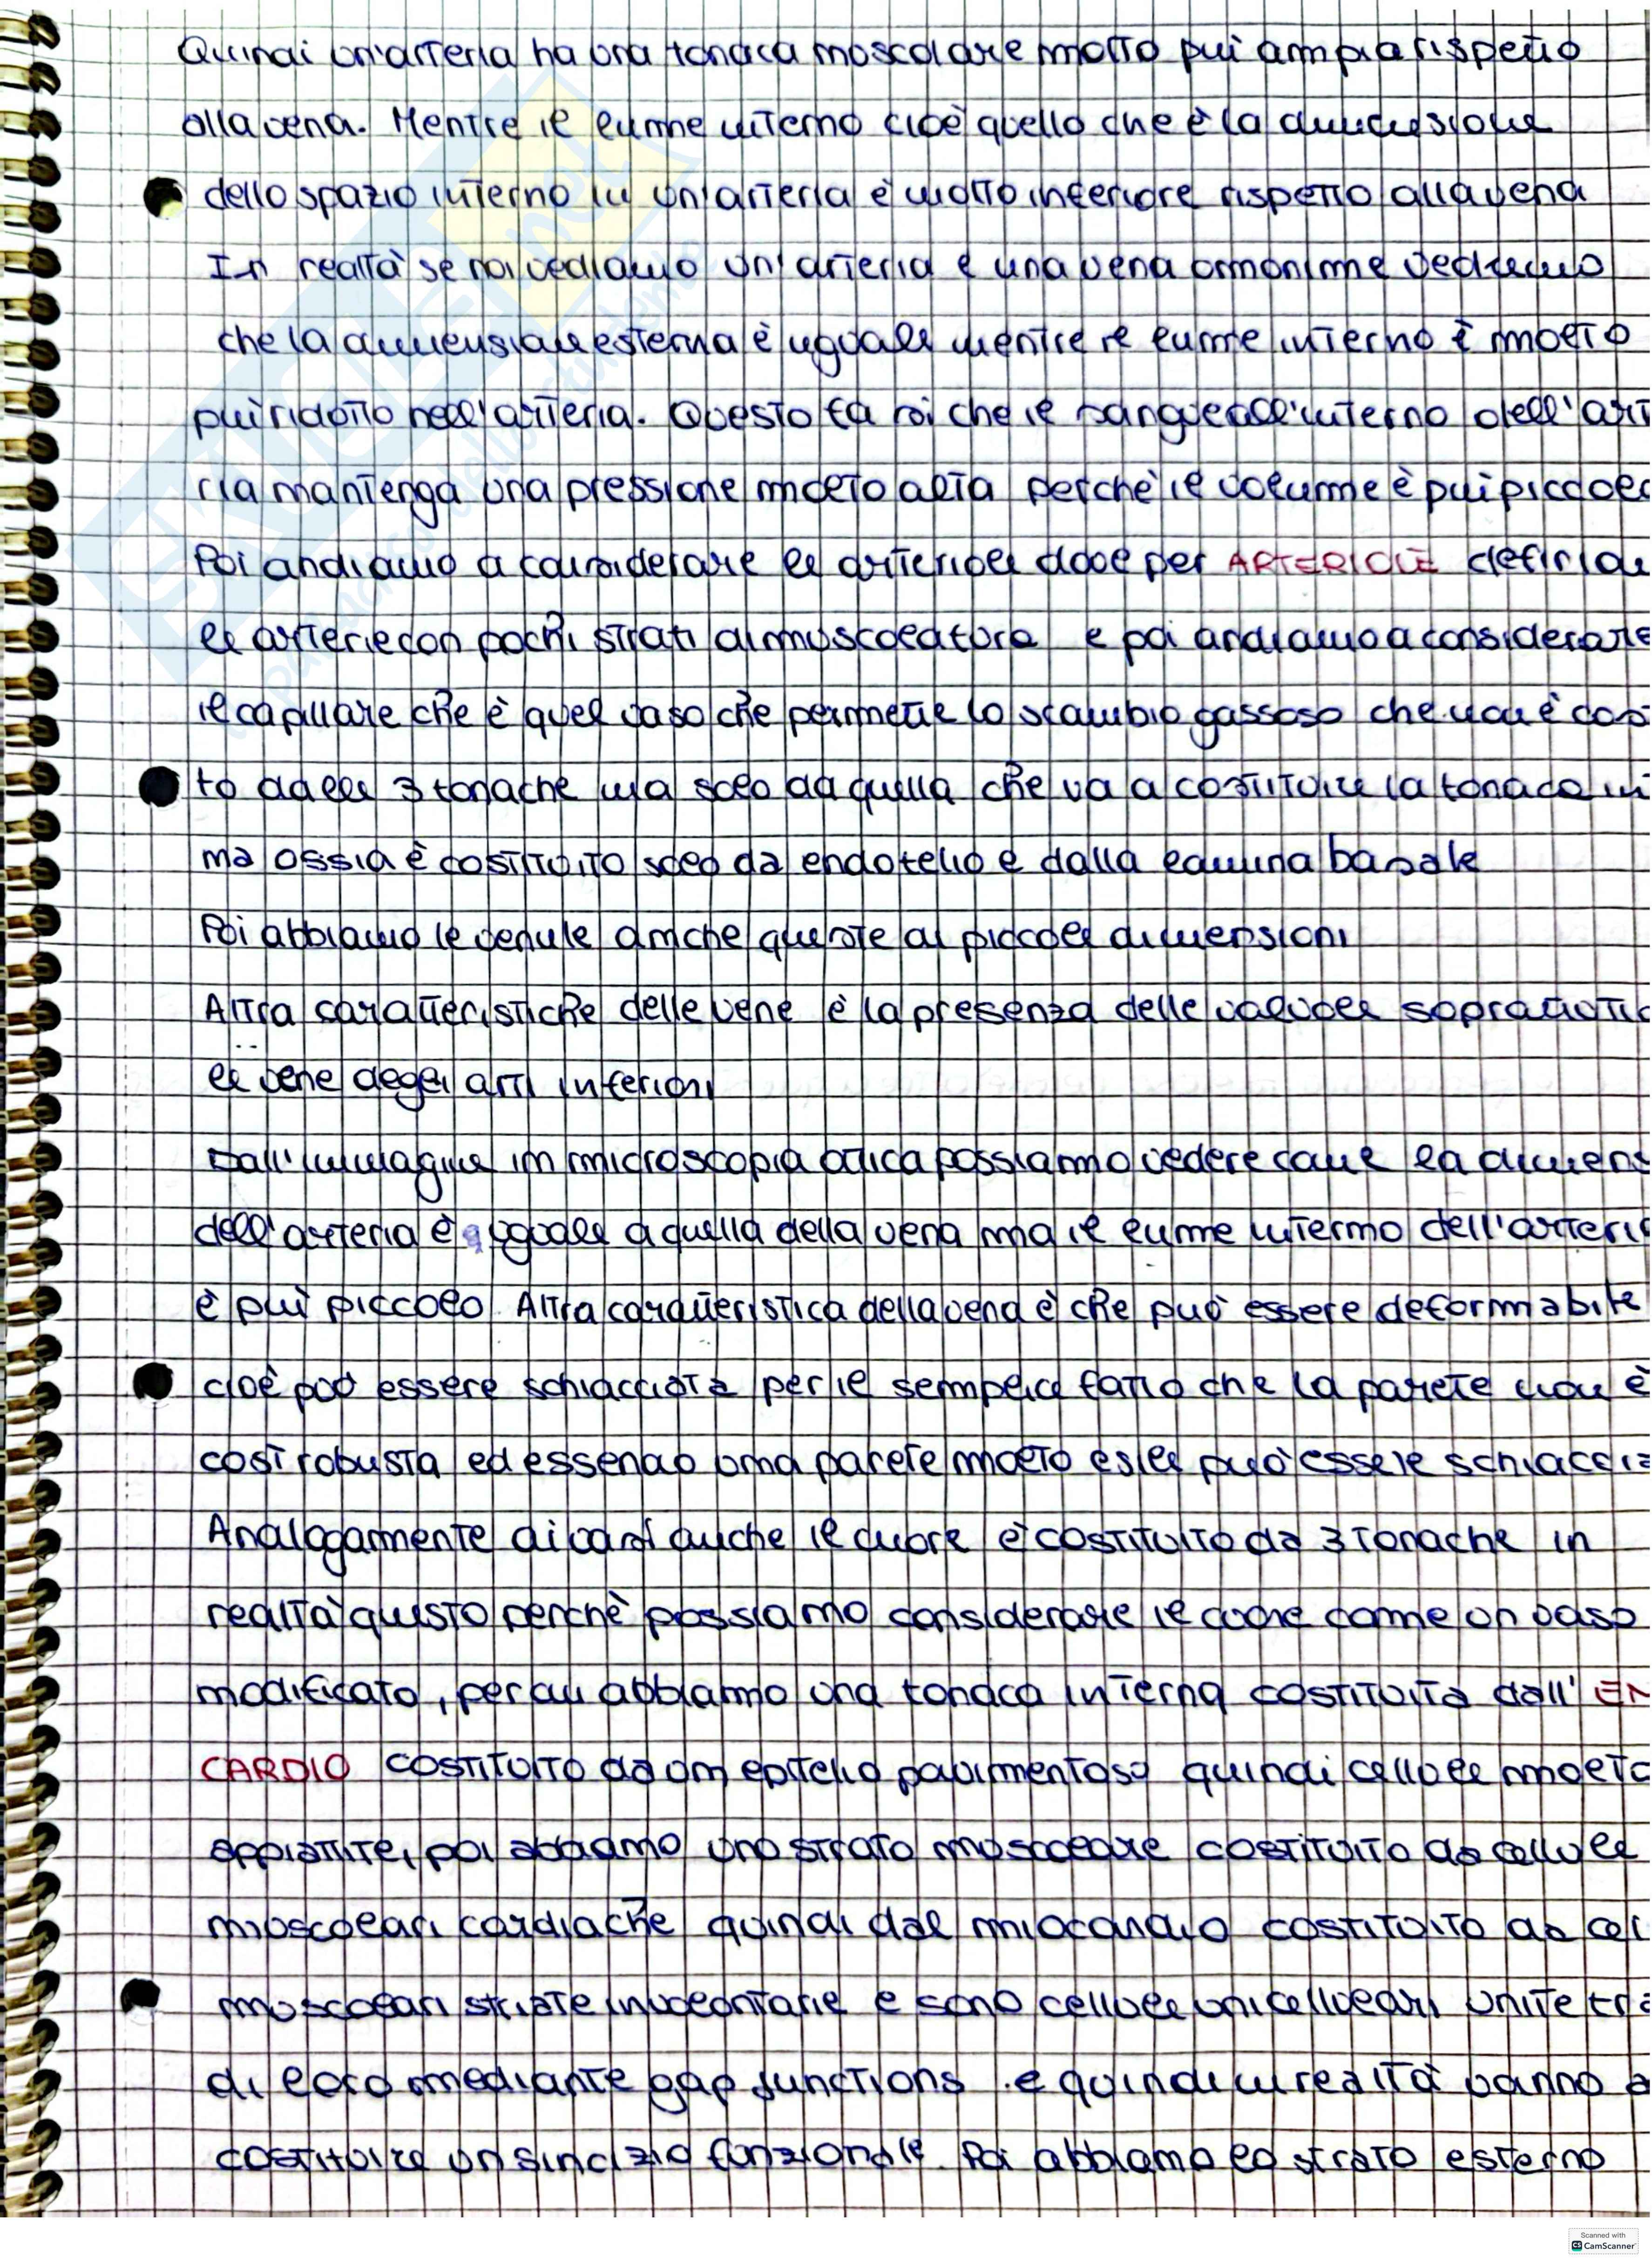 Quindi un'arteria ha una tonaca muscolare molto più ampia rispetto
alla vena. Mentre il lume interno cioè quello che è la dimensione
dello spazio interno in un'arteria è molto inferiore rispetto alla vena
In realtà se noi vediamo un'arteria e una vena omonime vediamo
che la dimensione esterna è uguale mentre il lume interno è molto
più ridotto nell'arteria. Questo fa si che il sangue all'interno dell'art
ria mantenga una pressione molto alta perchè il volume è più piccolo
Poi andiamo a considerare le arteriole dove per ARTERIOLE definia
le arterie con pochi strati di muscolatura e poi andiamo a considerare
il capillare che è quel vaso che permette lo scambio gassoso che non è cos
to dalle 3 tonache ma solo da quella che va a costituire la tonaca in
ma ossia è costituito solo da endotelio e dalla lamina basale
Poi abbiamo le venule anche queste di piccole dimensioni
Altra caratteristiche delle vene è la presenza delle valvole
le vene degli arti inferiori
Dall'immagine in microscopia ottica possiamo vedere come la dimens
dell'arteria è uguale a quella della vena ma il lume interno dell'arteri
è più piccolo. Altra caratteristica della vena è che può essere deformabile
cioè può essere schiacciata per il semplice fatto che la parete non è
così robusta ed essendo una parete molto esile può essere schiaccia
Analogamente ai vasi anche il cuore è costituito da 3 tonache in
realtà questo perchè possiamo considerare il cuore come un vaso
modificato, per cui abbiamo una tonaca interna costituita dall' EN
CARDIO costituito da un epitelio pavimentoso quindi cellule molto
appiattite, poi abbiamo uno strato muscolare costituito da cellule
muscolari cardiache quindi dal miocardio costituito da cel
muscolari striate involontarie e sono cellule unicellulari unite tra
di loro mediante gap junctions e quindi in realtà vanno a
costituire un sincizio funzionale. Poi abbiamo lo strato esterno
SKUOLA.net
Scanned with
CS CamScanner